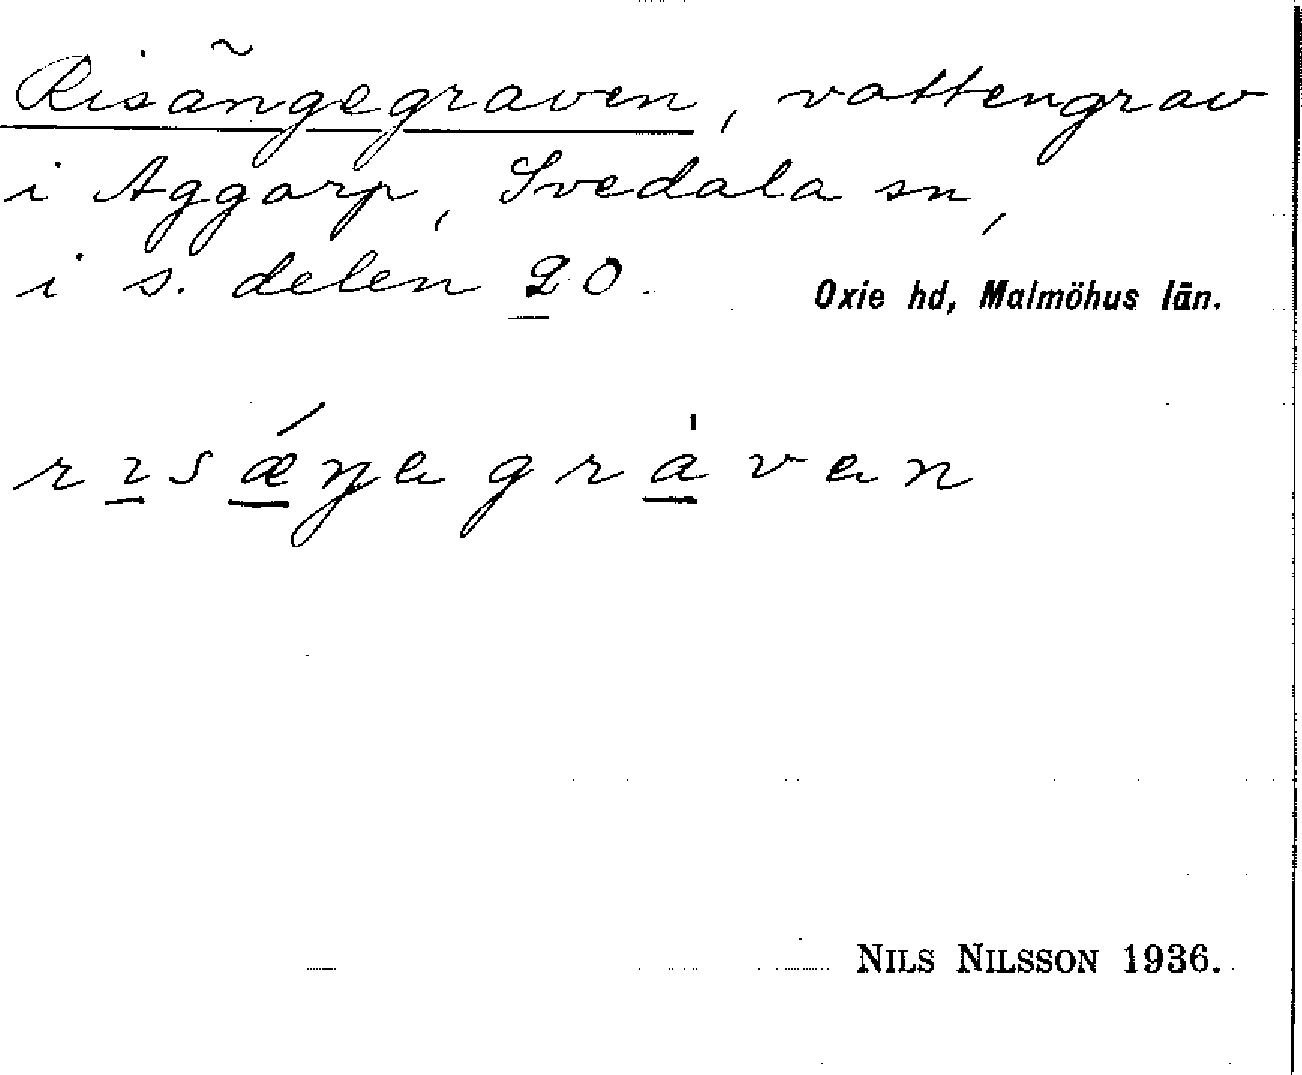 Risängegraven, vattengrav
i Aggarp, Svedala sn,
i s. delen 20.
Oxie hd, Malmöhus län.
rɪsǽŋegrávεn
NILS NILSSON 1936.